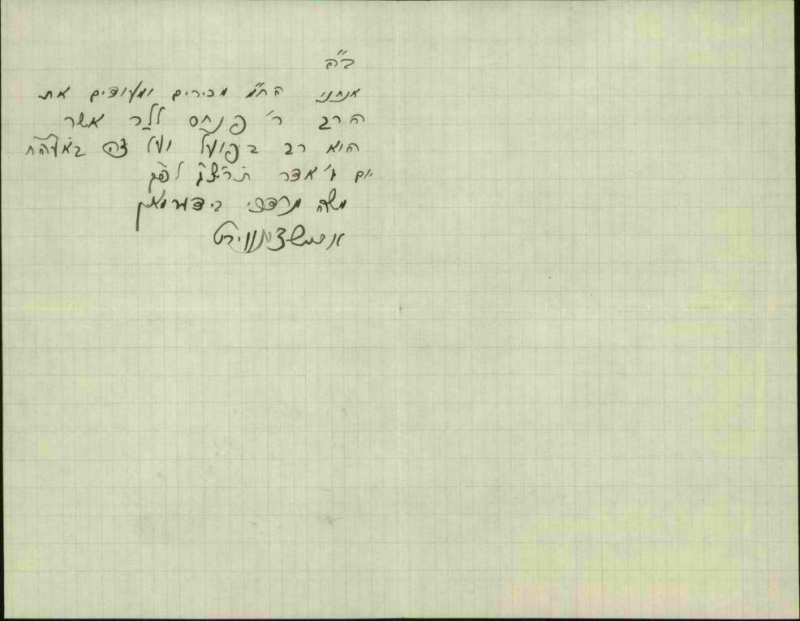 ב"ה
אנחנו הח"מ מכירים ומעידים את
הרב ר' פנחס ללר אשר
הוא רב בפועל ועל זה באעה"ח
יום ג' אדר תרצ"ג לפ"ק
משה מרדכי בידערמאן